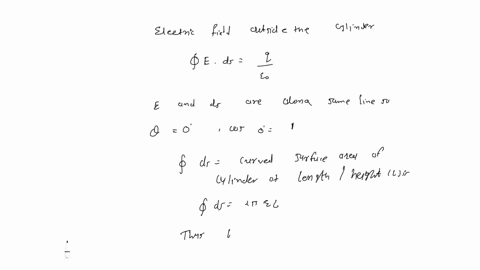 Electric field outside the cylinder
∮ E . ds = q / ε₀
E and ds are along same line so
θ = 0° , cos 0° = 1
∮ ds = curved surface area of
cylinder of length / height (L) is
∮ ds = 2π rL
Thus